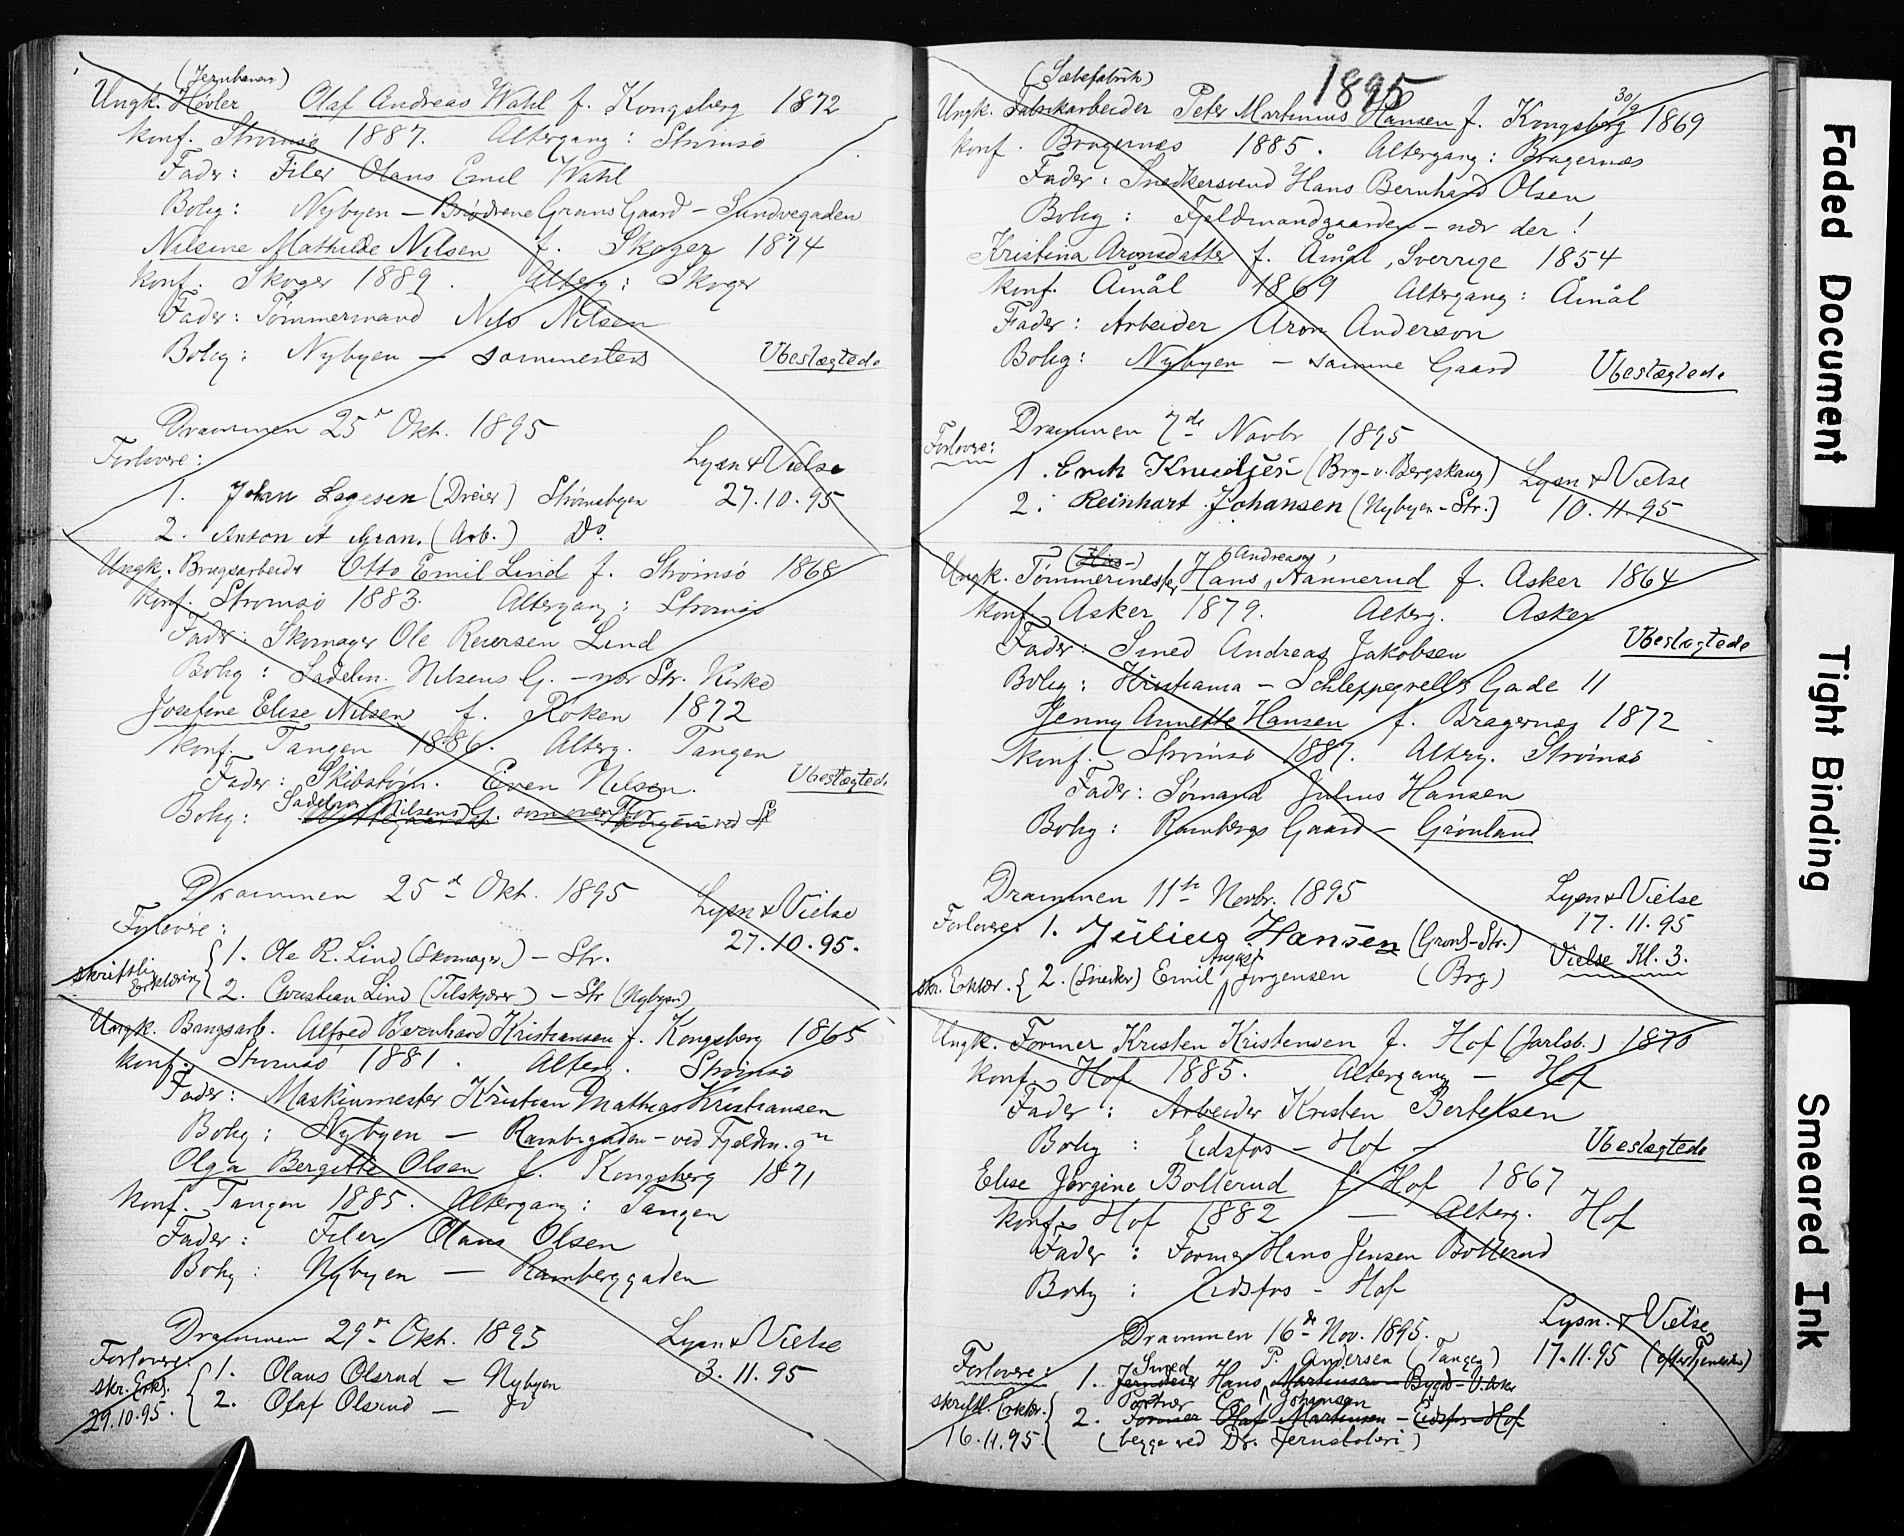 (Jernbanen)
Ungk. Høvler Olaf Andreas Wahl f. Kongsberg 1872
konf. Strømsø 1887. Altergang: Strømsø
Fader: Filer Olaus Emil Wahl
Bolig: Nybyen – Brødrene Grans Gaard – Sundvegaden
Nilsine Mathilde Nilsen f. Skoger 1874
konf. Skoger 1889. Alterg: Skoger
Fader: Tømmermand Nils Nilsen
Bolig: Nybyen – sammesteds Ubeslægtede
Drammen 25 Okt. 1895
Forlovere: Lysn & Vielse
1. Johan Lagesen (Dreier) Strømsbyen 27.10.95
2. Anton A Gran. (Arb.) Do.
Ungk. Brugsarbeider Otto Emil Lind f. Strømsø 1868
konf. Strømsø 1883. Altergang: Strømsø
Fader: Skomager Ole Reiersen Lind
Bolig: Sadelm. Nilsens G. – nær Str. Kirke
Josefine Elise Nilsen f. Røken 1872
konf. Tangen 1886. Alterg. Tangen
Fader: Skibstøm. Even Nilsen. Ubeslægtede
Bolig: Sadelm Nilsens G. som over
Drammen 25 Okt. 1895 Lysn & Vielse
Forlovere: 27.10.95.
1. Ole R. Lind (Skomager) – Str.
skriftlig Erklæring
2. Christian Lind (Tilskjærer) – Str (Nybyen)
Ungk. Brugsarb. Alfred Bernhard Kristiansen f. Kongsberg 1865
konf. Strømsø 1881. Alterg. Strømsø
Fader: Maskinmester Kristian Mathias Kristiansen
Bolig: Nybyen – Rambgaden – ved Fjeldm.gn
Olga Bergitte Olsen f. Kongsberg 1871
konf. Tangen 1885. Altergang: Tangen
Fader: Filer Olaus Olsen
Bolig: Nybyen – Ramberggaden
Drammen 29 Okt. 1895 Lysn & Vielse
Forlovere: 3.11.95
1. Olaus Olsrud – Nybyen
skr. Erkl.
2. Olaf Olsrud –
29.10.95.
1895
(Sæbefabrik)
30/9
Ungk. Fabrikarbeider Peter Martinius Hansen f. Kongsberg 1869
konf. Bragernæs 1885. Altergang: Bragernæs
Fader: Snedkersvend Hans Bernhard Olsen
Bolig: Fjeldmandgaarden – nær der!
Kristina Aronsdatter f. Åmål, Sverrige 1854
konf. Åmål 1869 Altergang: Åmål
Fader: Arbeider Aron Anderson
Bolig: Nybyen – samme Gaard Ubeslægtede
Drammen 7de Novbr 1895
Forlovere:
1. Erik Knudsen (Brg – v. Bergskaug) Lysn & Vielse
2. Reinhart Johansen (Nybyen – Str.) 10.11.95
Andreas
Ungk. Tømmermester Hans Hannerud f. Asker 1864
konf. Asker 1879. Alterg. Asker
Fader: Smed Andreas Jakobsen Ubeslægtede
Bolig: Kristiania – Schleppegrells Gade 11
Jenny Annette Hansen f. Bragernæs 1872
konf. Strømsø 1887. Alterg. Strømsø
Fader: Sømand Julius Hansen
Bolig: Rambergs Gaard – Grønland
Drammen 11te Novbr. 1895 Lysn & Vielse
17.11.95
Forlovere: 1. Julius Hansen (Grønl – Str.)
Vielse Kl. 3.
August
skr. Erklær. 2. (Snedker) Emil Jørgensen (Brg)
Ungk. Former Kristen Kristensen f. Hof (Jarlsb.) 1870
konf. Hof 1885. Altergang – Hof
Fader: Arbeider Kristen Bertelsen
Bolig: Eidsfos – Hof – Ubeslægtede
Elise Jørgine Bollerud f. Hof 1867
konf. Hof 1882 – Alterg. Hof
Fader: Former Hans Jensen Bollerud
Bolig: Eidsfos – Hof
Drammen 16de Nov. 1895. Lysn. & Vielse
17.11.95 (efter Tjenesten)
Forlovere: Smed P. Andersen (Tangen)
1. Jerndreier Hans Martinsen – Bygd – V. Aker
skriftl. Erklær. Johansen
2. Former Olaf Martinsen – Eidsfos – Hof
16.11.95. (begge ved Dr. Jernstøberi)
Faded Document
Tight Binding
Smeared Ink